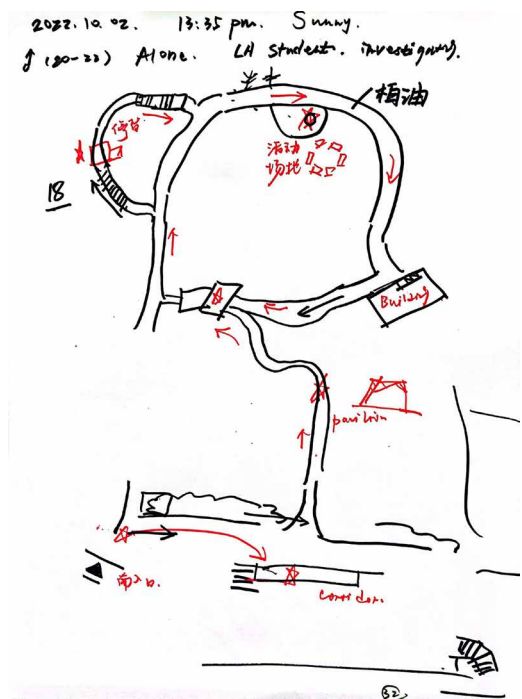 2022.10.02. 13:35 pm. Sunny.
(20-22) Alone. LA student. investigating.
柏油
停留
活动
场地
18
Building
pavilion
南入口
Corridor.
32